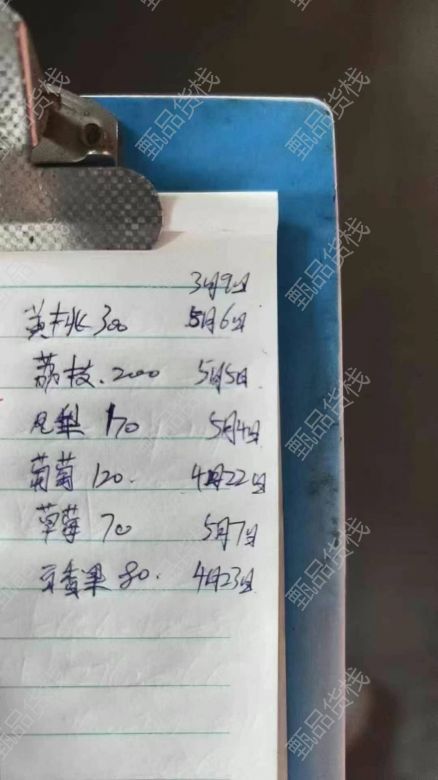 3月9日
黄桃 300 5月6日
荔枝.2000 5月5日
凤梨 170 5月4日
葡萄 120. 4月22日
草莓 70 5月7日
百香果 80. 4月23日
甄品货栈
甄品货栈
甄品货栈
甄品货栈
甄品货栈
甄品货栈
甄品货栈
甄品货栈
甄品货栈
甄品货栈